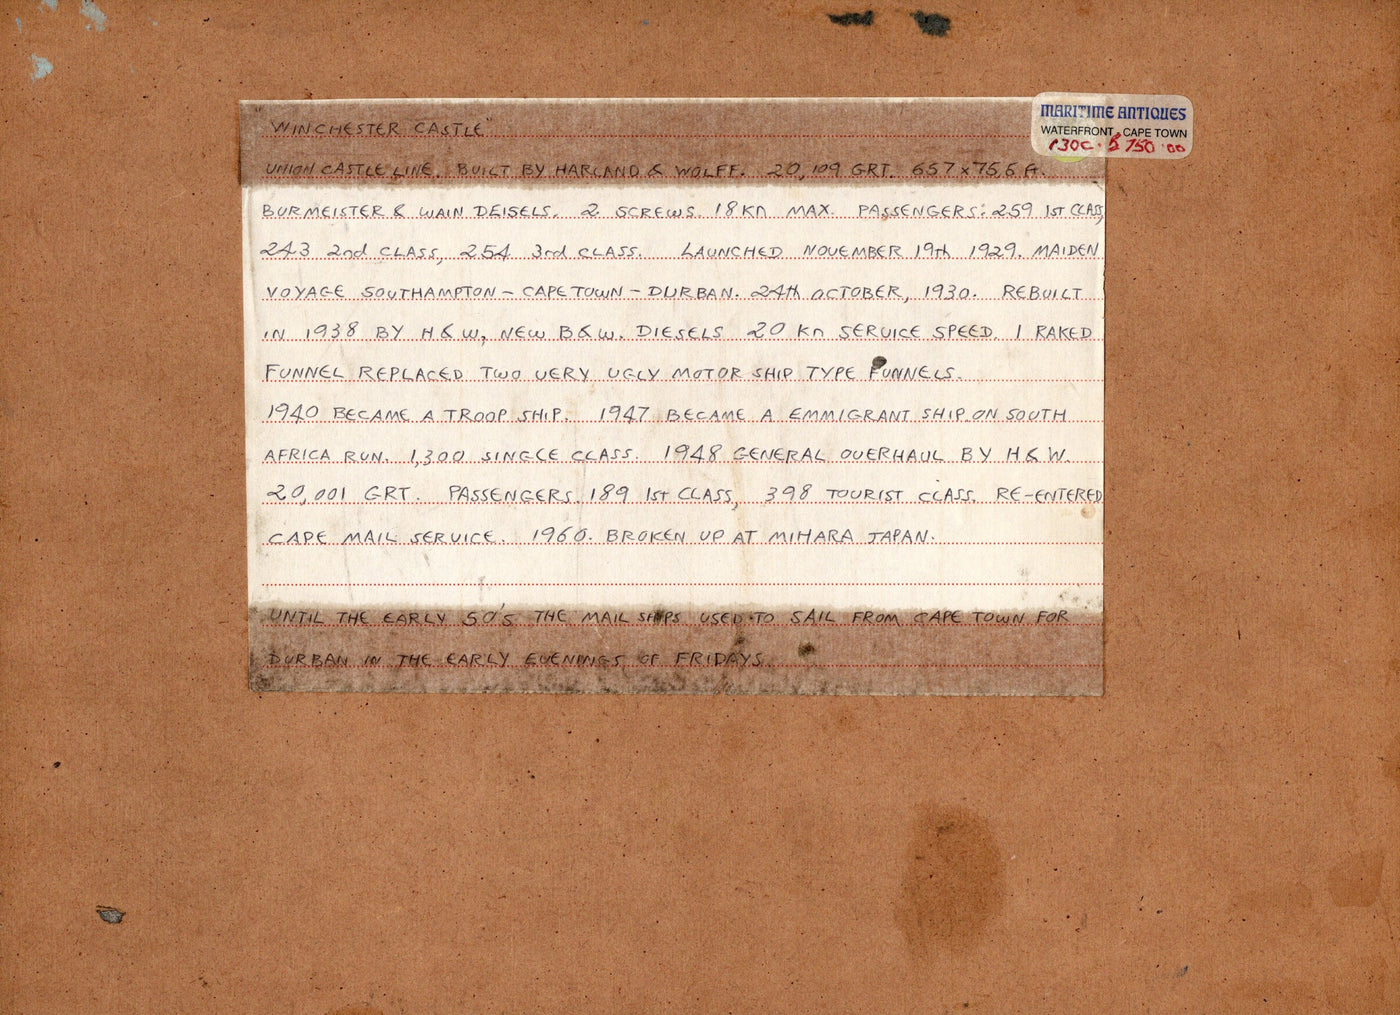 "WINCHESTER CASTLE"
UNION CASTLE LINE. BUILT BY HARLAND & WOLFF. 20,109 GRT. 657 x 75,6 ft.
BURMEISTER & WAIN DEISELS. 2 SCREWS. 18 Kn MAX. PASSENGERS: 259 1st CLASS,
243 2nd CLASS, 254 3rd CLASS. LAUNCHED NOVEMBER 19th 1929. MAIDEN
VOYAGE SOUTHAMPTON - CAPETOWN - DURBAN. 24th OCTOBER, 1930. REBUILT
IN 1938 BY H & W, NEW B & W. DIESELS 20 Kn SERVICE SPEED. 1 RAKED
FUNNEL REPLACED TWO VERY UGLY MOTOR SHIP TYPE FUNNELS.
1940 BECAME A TROOP SHIP. 1947 BECAME A EMMIGRANT SHIP ON SOUTH
AFRICA RUN. 1,300 SINGLE CLASS. 1948 GENERAL OVERHAUL BY H & W.
20,001 GRT. PASSENGERS. 189 1st CLASS, 398 TOURIST CLASS. RE-ENTERED
CAPE MAIL SERVICE. 1960. BROKEN UP AT MIHARA JAPAN.
UNTIL THE EARLY 50's THE MAIL SHIPS USED TO SAIL FROM CAPE TOWN FOR
DURBAN IN THE EARLY EVENINGS OF FRIDAYS.
MARITIME ANTIQUES
WATERFRONT, CAPE TOWN
750.00